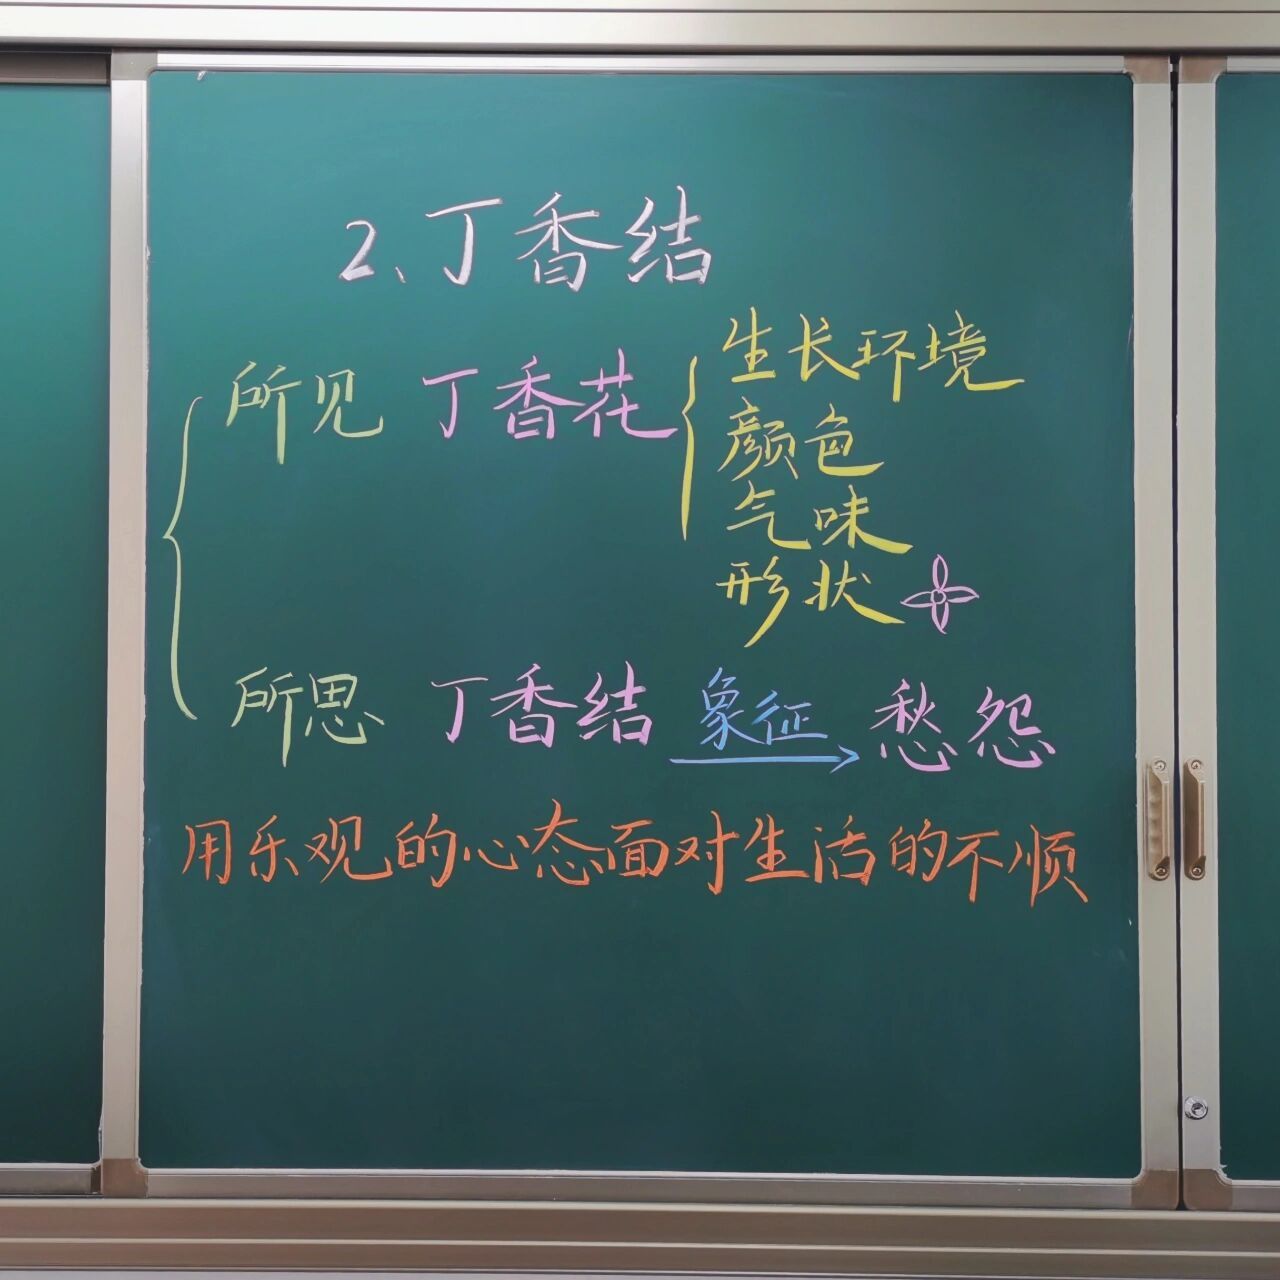 2、丁香结
所见 丁香花
生长环境
颜色
气味
形状
所思 丁香结 象征 愁怨
用乐观的心态面对生活的不顺